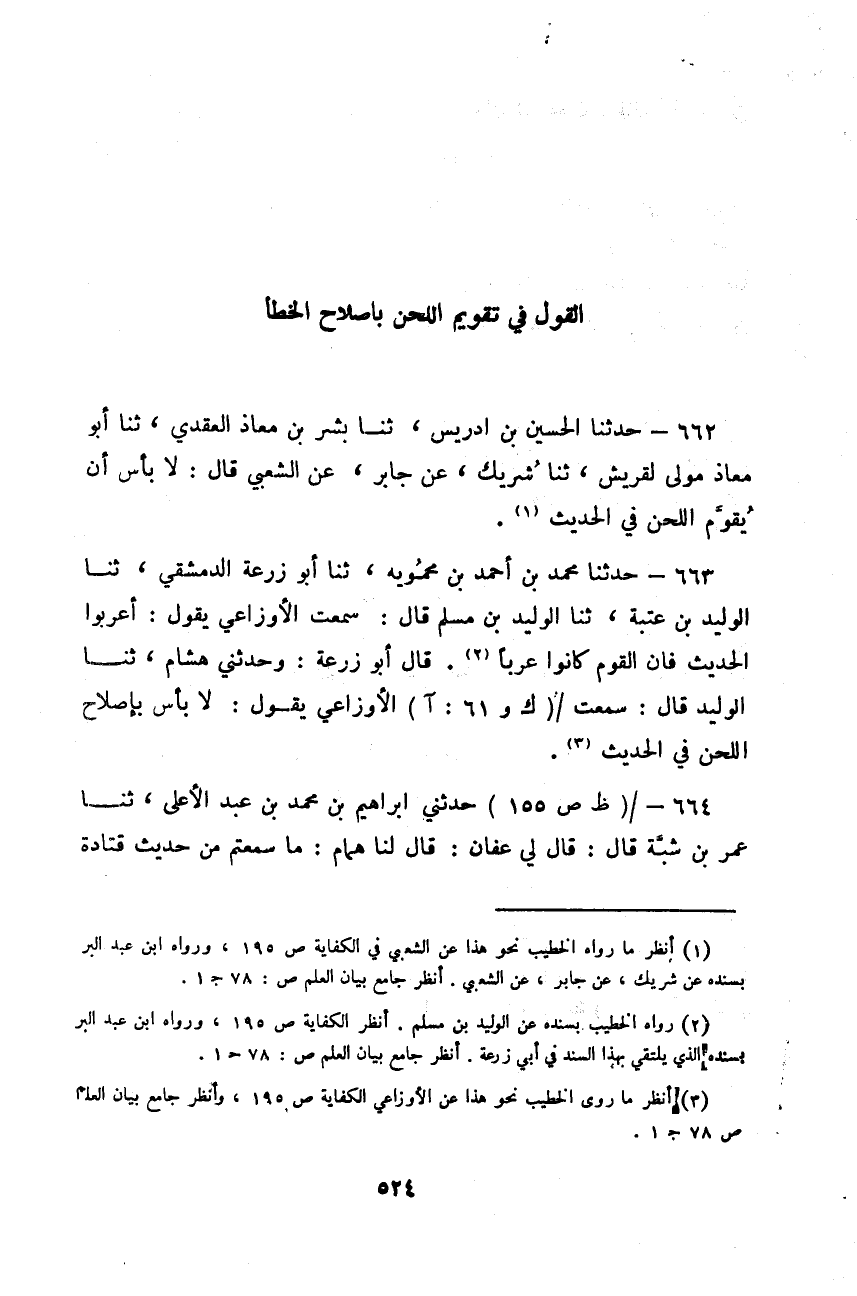 القول في تقويم اللحن باصلاح الخطأ
٦٦٢ – حدثنا الحسين بن ادريس ، ثنـا بشر بن معاذ العقدي ، ثنا أبو
معاذ مولى لقريش ، ثنا ُشريك ، عن جابر ، عن الشعبي قال : لا بأس أن
ُيقوَّم اللحن في الحديث (١) .
٦٦٣ – حدثنا محمد بن أحمد بن محمُويه ، ثنا أبو زرعة الدمشقي ، ثنـا
الوليد بن عتبة ، ثنا الوليد بن مسلم قال : سمعت الأوزاعي يقول : أعربوا
الحديث فان القوم كانوا عرباً (٢) . قال أبو زرعة : وحدثني هشام ، ثنـا
الوليد قال : سمعت /( ك و ٦١ : آ ) الأوزاعي يقـول : لا بأس بإصلاح
اللحن في الحديث (٣) .
٦٦٤ – /( ظ ص ١٥٥ ) حدثني ابراهيم بن محمد بن عبد الأعلى ، ثنـا
عمر بن شبَّة قال : قال لي عفان : قال لنا همام : ما سمعتم من حديث قتادة
(١) أنظر ما رواه الخطيب نحو هذا عن الشعبي في الكفاية ص ١٩٥ ، ورواه ابن عبد البر
بسنده عن شريك ، عن جابر ، عن الشعبي . أنظر جامع بيان العلم ص : ٧٨ جـ ١ .
(٢) رواه الخطيب بسنده عن الوليد بن مسلم . أنظر الكفاية ص ١٩٥ ، ورواه ابن عبد البر
بسنده الذي يلتقي بهذا السند في أبي زرعة . أنظر جامع بيان العلم ص : ٧٨ جـ ١ .
(٣) أنظر ما روى الخطيب نحو هذا عن الأوزاعي الكفاية ص ١٩٥ ، وأنظر جامع بيان العلم
ص ٧٨ جـ ١ .
٥٢٤